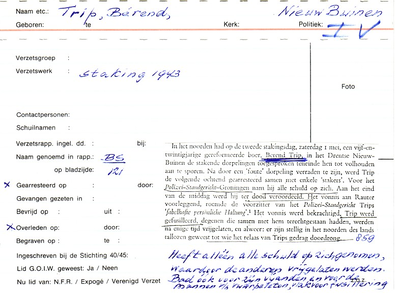 Naam etc.: Trip, Bérend, Nieuw Buinen
Geboren: te Kerk: Politiek: IV
Verzetsgroep :
Verzetswerk : staking 1943
Foto
Contactpersonen:
Schuilnaam :
Verzetsrapp. ingel. dd. : bij:
Naam genoemd in rapp.: BS
op bladzijde:
x Gearresteerd op : door:
Gevangen gezeten in :
Bevrijd op : uit :
x Overleden op : door:
Begraven op : te :
Ingeschreven bij de Stichting 40/45:
Lid G.O.I.W. geweest: Ja / Neen
Nu lid van: N.F.R. / Expogé / Verenigd Verzet
In het noorden had op de tweede stakingsdag, zaterdag 1 mei, een vijf-en-
twintigjarige gereformeerde boer, Berend Trip, in het Drentse Nieuw-
Buinen de stakende dorpelingen toegesproken teneinde hen tot volhouden
aan te sporen. Na door een 'foute' dorpeling verraden te zijn, werd Trip
de volgende ochtend gearresteerd samen met enkele 'stakers'. Voor het
Polizei-Standgericht-Groningen nam hij alle schuld op zich. Aan het eind
van de middag werd hij ter dood veroordeeld. Het vonnis aan Rauter
voorleggend, roemde de voorzitter van het Polizei-Standgericht Trips
'fabelhafte persönliche Haltung'. Het vonnis werd bekrachtigd, Trip werd
gefusilleerd, degenen die samen met hem terechtgestaan hadden, werden
na enige tijd vrijgelaten, en alweer: er zijn stellig in het noorden des lands
tallozen geweest tot wie het relaas van Trips gedrag doordrong. 859
Heeft alléén alle schuld op zich genomen,
waardoor de anderen vrijgelaten werden.
Bad ook voor zijn vijanden en voor de